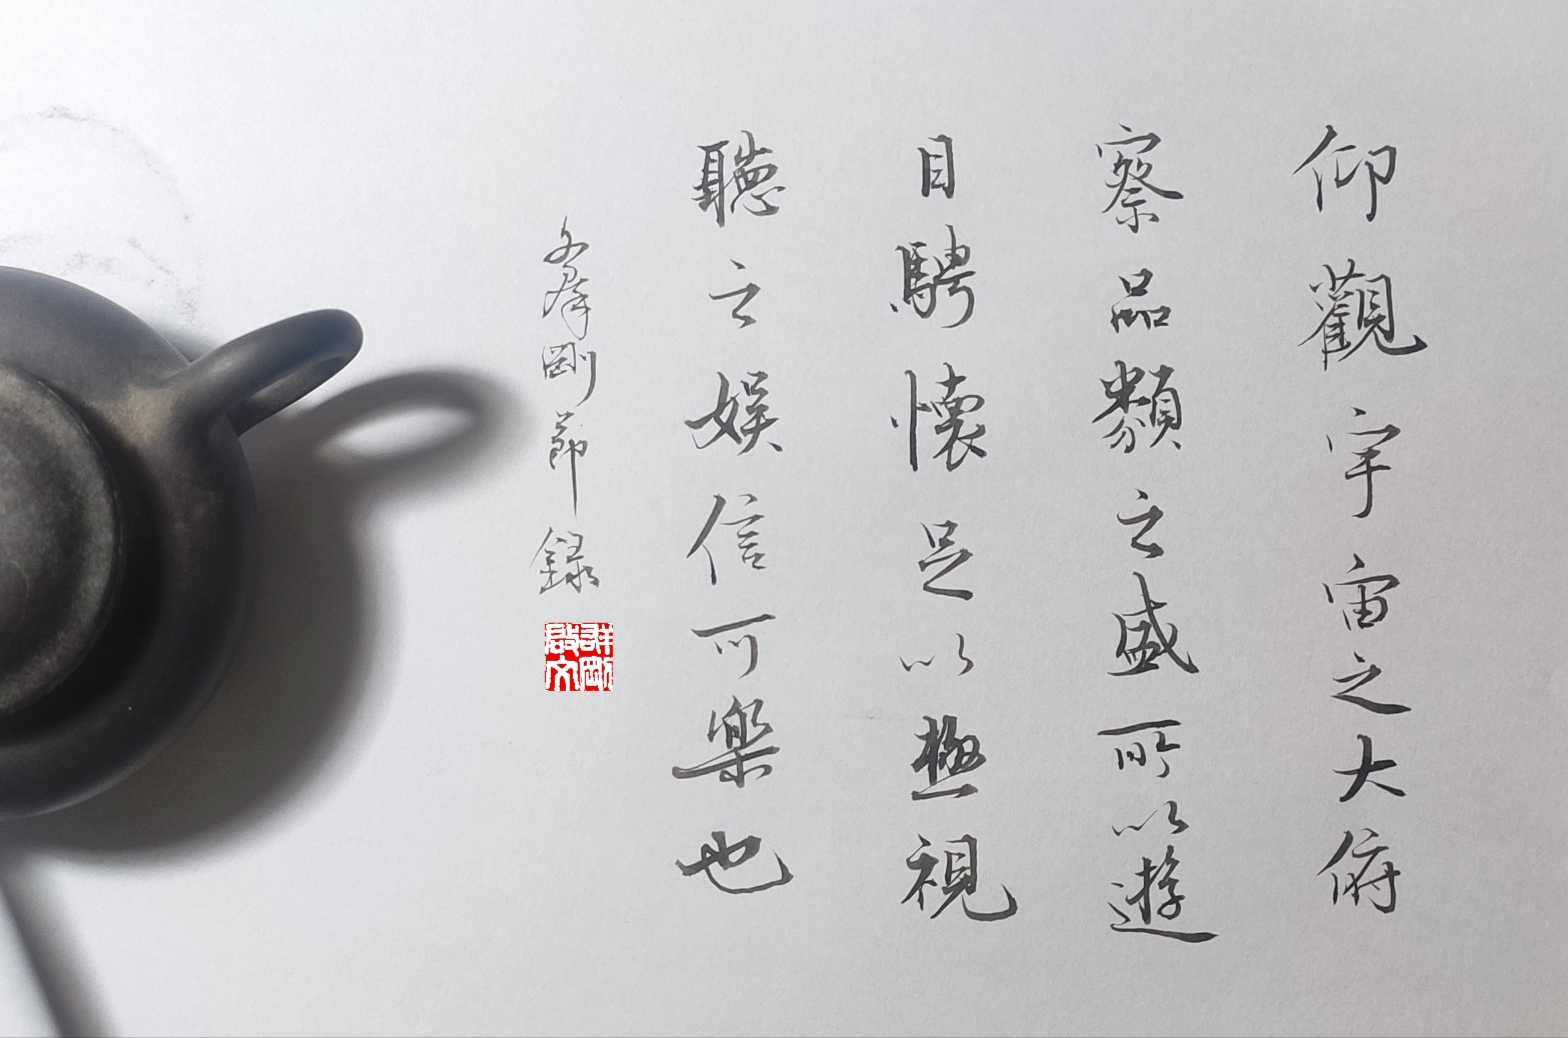 仰觀宇宙之大俯
察品類之盛所以遊
目騁懷足以極視
聽之娛信可樂也
剛節錄